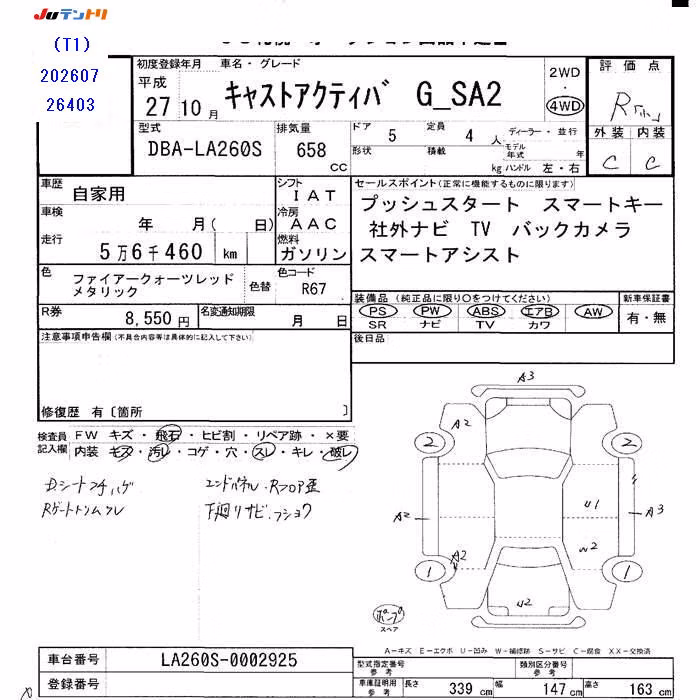 Juテントリ
(T1)
202607
26403
初度登録年月 車名・グレード
平成
27 10 月
キャストアクティバ G_SA2
2WD
・
4WD
評価点
R
外装 内装
C C
型式
DBA-LA260S
排気量
658
CC
ドア 5 定員 4 人
形状 積載 kg
ディーラー・並行
モデル年式 年
ハンドル 左・右
車歴 自家用
シフト IAT
車検 年 月( 日)
冷房 AAC
走行 5万6千460 km
燃料 ガソリン
セールスポイント(正常に機能するものに限ります)
プッシュスタート スマートキー
社外ナビ TV バックカメラ
スマートアシスト
色 ファイアークォーツレッド
メタリック
色替
色コード
R67
R券 8,550円
名変通知期限 月 日
装備品 (純正品に限り○をつけてください)
PS PW ABS エアB AW
SR ナビ TV カワ
新車保証書
有・無
後日品
注意事項申告欄(不具合内容等は具体的に記入して下さい)
修復歴 有〔箇所 〕
検査員 FW キズ・飛石・ヒビ割・リペア跡・×要
記入欄 内装 キズ・汚レ・コゲ・穴・スレ・キレ・破レ
エンドパネル・Rフロア歪
下廻リサビ・フショク
A3
A2
2 2
A2 A3
U1
W2
A2
1 1
U2
スペア
A-キズ E-エクボ U-凹み W-補修跡 S-サビ C-腐食 XX-交換済
車台番号 LA260S-0002925
登録番号
型式指定番号
参考
類別区分番号
参考
車庫証明用
参考
長さ 339 cm 幅 147 cm 高さ 163 cm